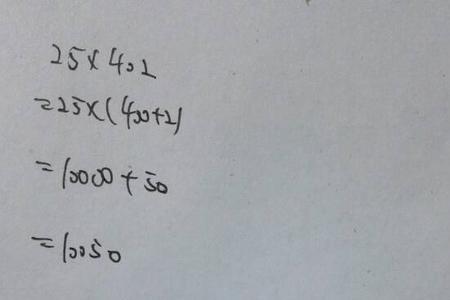 25×402
=25×(400+2)
=10000+50
=10050